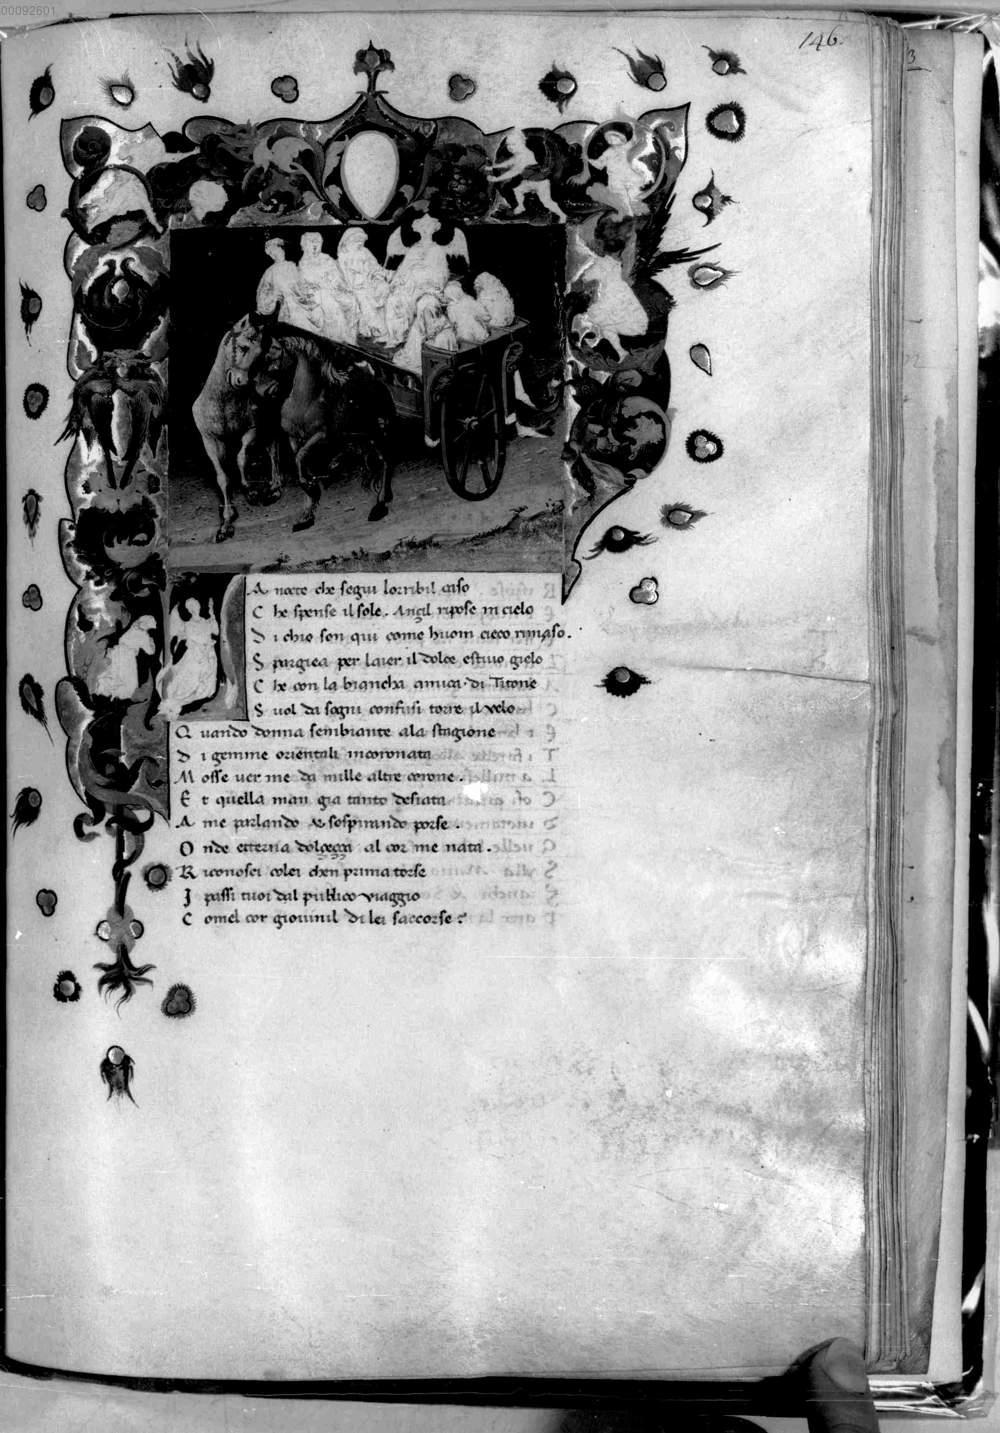 00092601
146.
3
A nocte che segui lorribil caso
C he spense il sole. Anzil ripose in cielo
D i chio son qui come huom cieco rimaso.
S pargiea per laier il dolce estiuo gielo
C he con la biancha amica di Titone
S uol da sogni confusi torre il velo
Q uando donna sembiante ala stagione
D i gemme orientali incoronata
M osse uer me da mille altre corone.
E t quella man gia tanto desiata
A me parlando & sospirando porse.
O nde etterna dolcezza al cor me nata.
R iconosci colei chen prima torse
I passi tuoi dal publico viaggio
C omel cor giouinil di lei saccorse: